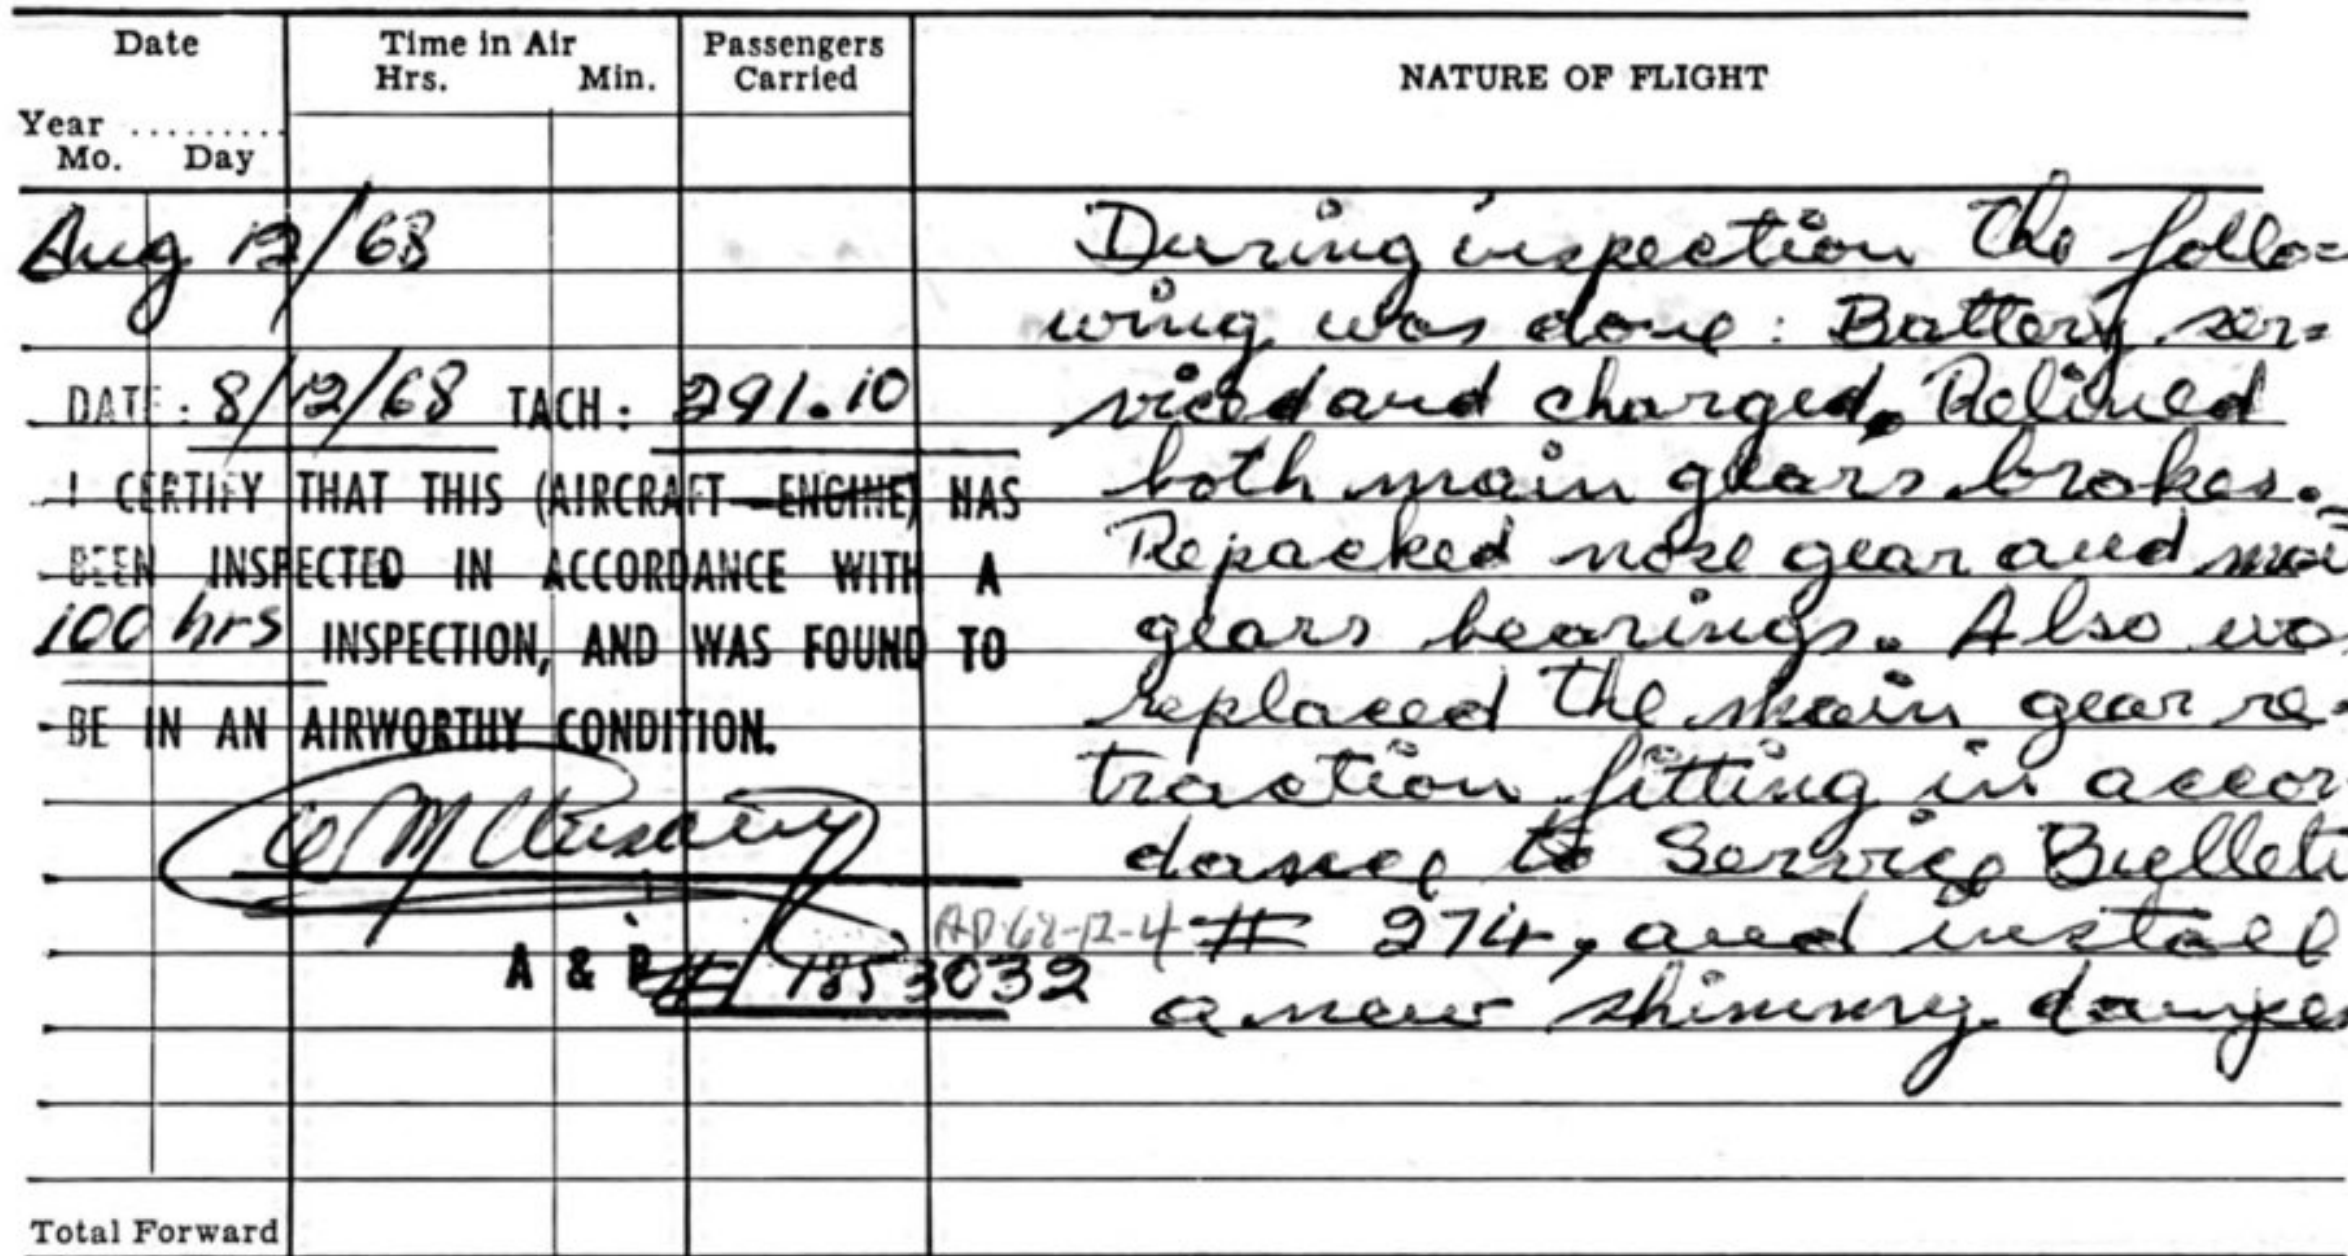 Date
Time in Air
Passengers
Hrs. Min.
Carried
NATURE OF FLIGHT
Year .........
Mo. Day
Aug 12/68
DATE: 8/12/68 TACH: 291.10
I CERTIFY THAT THIS (AIRCRAFT ENGINE) HAS
BEEN INSPECTED IN ACCORDANCE WITH A
100 hrs INSPECTION, AND WAS FOUND TO
BE IN AN AIRWORTHY CONDITION.
A & P # 1853032
During inspection the follo=
wing was done: Battery ser=
viced and charged. Relined
both main gears brakes.
Repacked nose gear and mai
gears bearings. Also wa
replaced the main gear re-
traction fitting in accor
dance to Service Bulleti
AD 68-12-4 # 274, and install
a new shimmy dampe
Total Forward